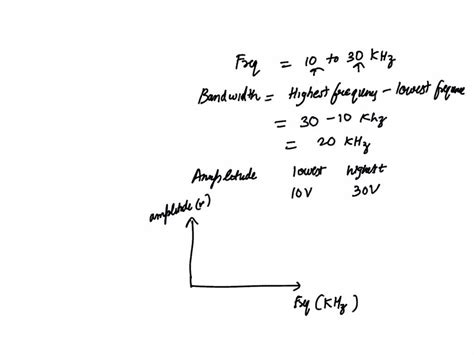 Freq = 10 to 30 KHz
Bandwidth = Highest frequency - lowest frequency
= 30 - 10 Khz
= 20 KHz
Amplitude lowest highest
10V 30V
amplitude(v)
Freq (KHz)